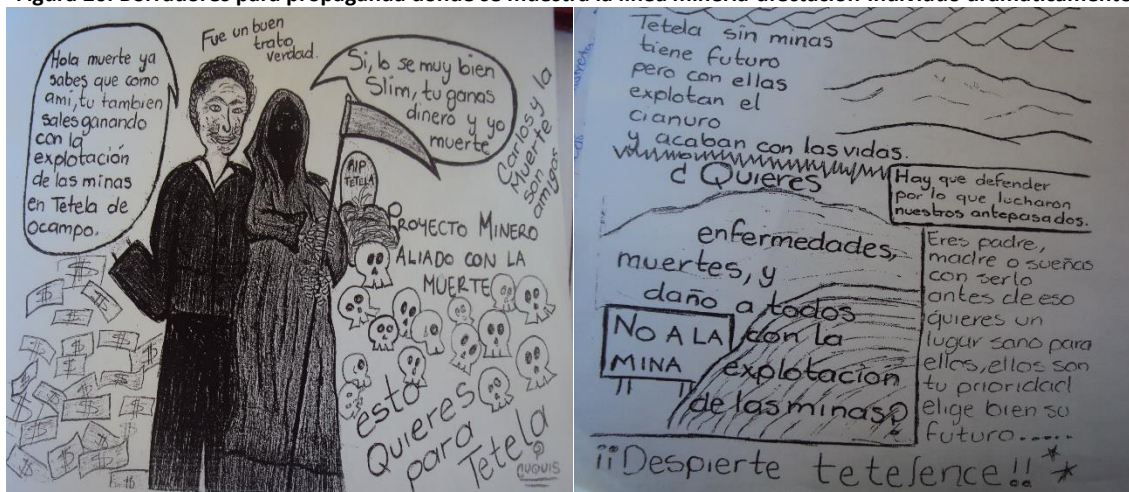 Figura 20. Borradores para propaganda donde se muestra la línea minería-afectación individuo dramáticamente
Hola muerte ya
sabes que como
ami, tu tambien
sales ganando
con la
explotación
de las minas
en Tetela de
ocampo.
Fue un buen
trato
verdad.
Si, lo se muy bien
Slim, tu ganas
dinero y yo
muerte
Carlos y la
Muerte son
amigos
RIP
TETELA
PROYECTO MINERO
ALIADO CON LA
MUERTE
esto
Quieres
para
Tetela
?
CUQUIS
Tetela sin minas
tiene futuro
pero con ellas
explotan el
cianuro
y acaban con las vidas.
¿ Quieres
enfermedades,
muertes, y
daño a todos
con la
explotación
de las minas?
NO A LA
MINA
Hay que defender
por lo que lucharon
nuestros antepasados.
Eres padre,
madre o sueñas
con serlo
antes de eso
quieres un
lugar sano para
ellos, ellos son
tu prioridad
elige bien su
futuro.....
¡¡Despierte tetelence!!